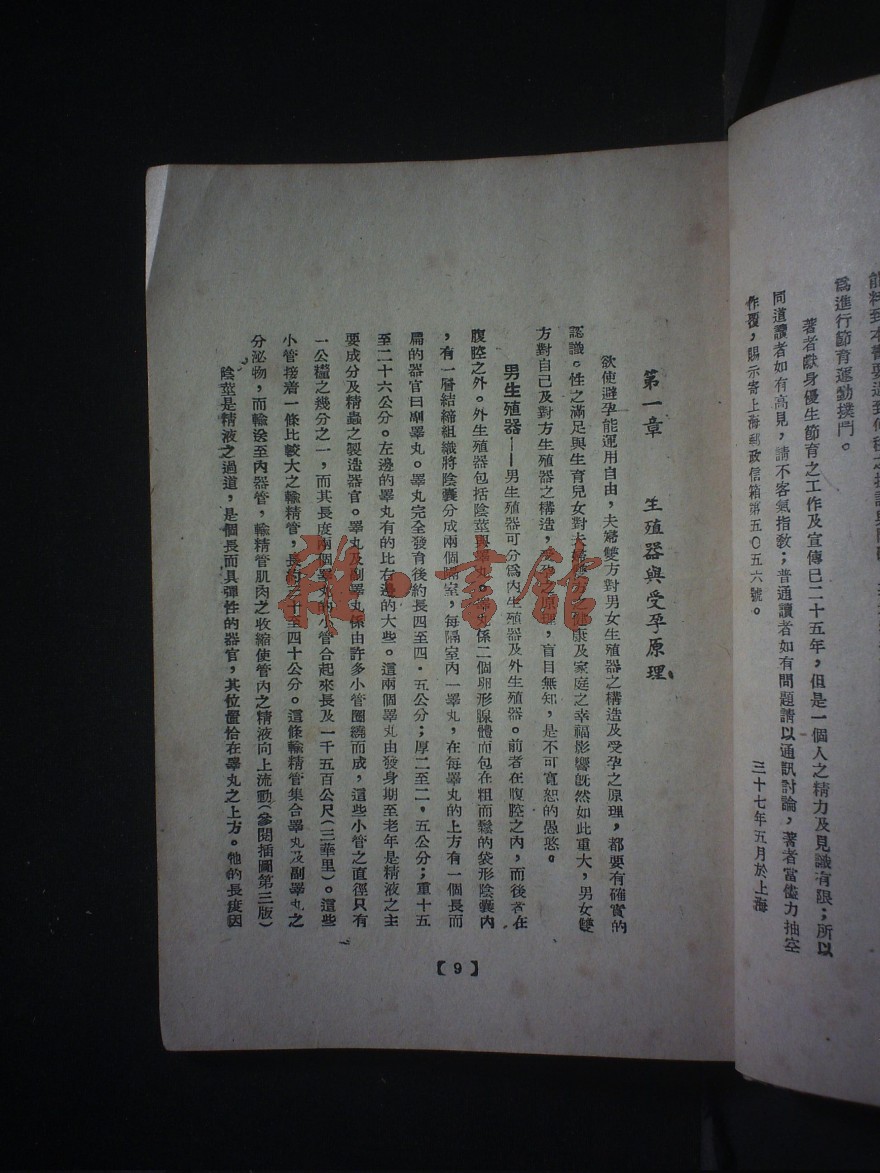 爲進行節育運動撲鬥。
著者獻身優生節育之工作及宣傳已二十五年，但是一個人之精力及見識有限；所以
同道讀者如有高見，請不客氣指敎；普通讀者如有問題請以通訊討論，著者當儘力抽空
作覆，賜示寄上海郵政信箱第五〇五六號。
三十七年五月於上海
第一章　生殖器與受孕原理
欲使避孕能運用自由，夫婦雙方對男女生殖器之構造及受孕之原理，都要有確實的
認識。性之滿足與生育兒女對夫婦雙方之健康及家庭之幸福影響旣然如此重大，男女雙
方對自己及對方生殖器之構造，受孕之原理，盲目無知，是不可寬恕的愚憨。
男生殖器——男生殖器可分爲內生殖器及外生殖器。前者在腹腔之內，而後者在
腹腔之外。外生殖器包括陰莖與睪丸。睪丸係二個卵形腺體而包在粗而鬆的袋形陰囊內
，有一層結締組織將陰囊分成兩個隔室，每隔室內一睪丸，在每睪丸的上方有一個長而
扁的器官曰副睪丸。睪丸完全發育後約長四至四・五公分；厚二至二，五公分；重十五
至二十六公分。左邊的睪丸有的比右邊的大些。這兩個睪丸由發身期至老年是精液之主
要成分及精蟲之製造器官。睪丸及副睪丸係由許多小管圈繞而成，這些小管之直徑只有
一公糎之幾分之一，而其長度兩個睪丸的小管合起來長及一千五百公尺（三華里）。這些
小管接着一條比較大之輸精管，長約三十至四十公分。這條輸精管集合睪丸及副睪丸之
分泌物，而輸送至內器管，輸精管肌肉之收縮使管內之精液向上流動（參閱插圖第三版）
陰莖是精液之過道，是個長而具彈性的器官，其位置恰在睪丸之上方。牠的長度因
【9】
雅・書館